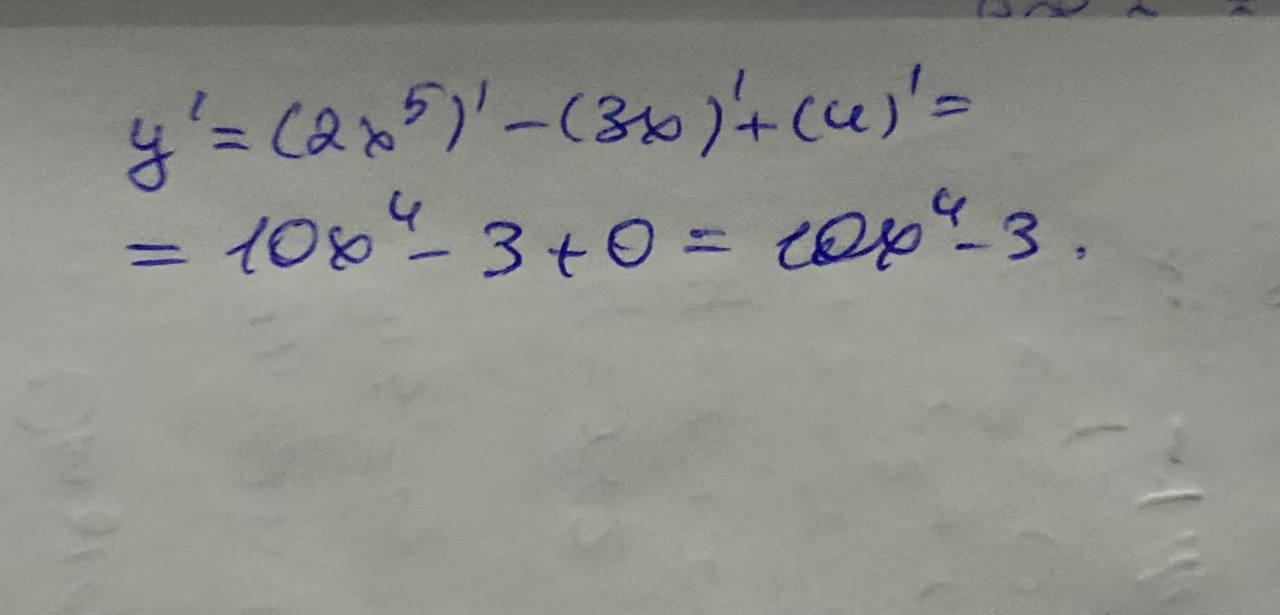 y' = (2x⁵)' - (3x)' + (4)' =
= 10x⁴ - 3 + 0 = 10x⁴ - 3.